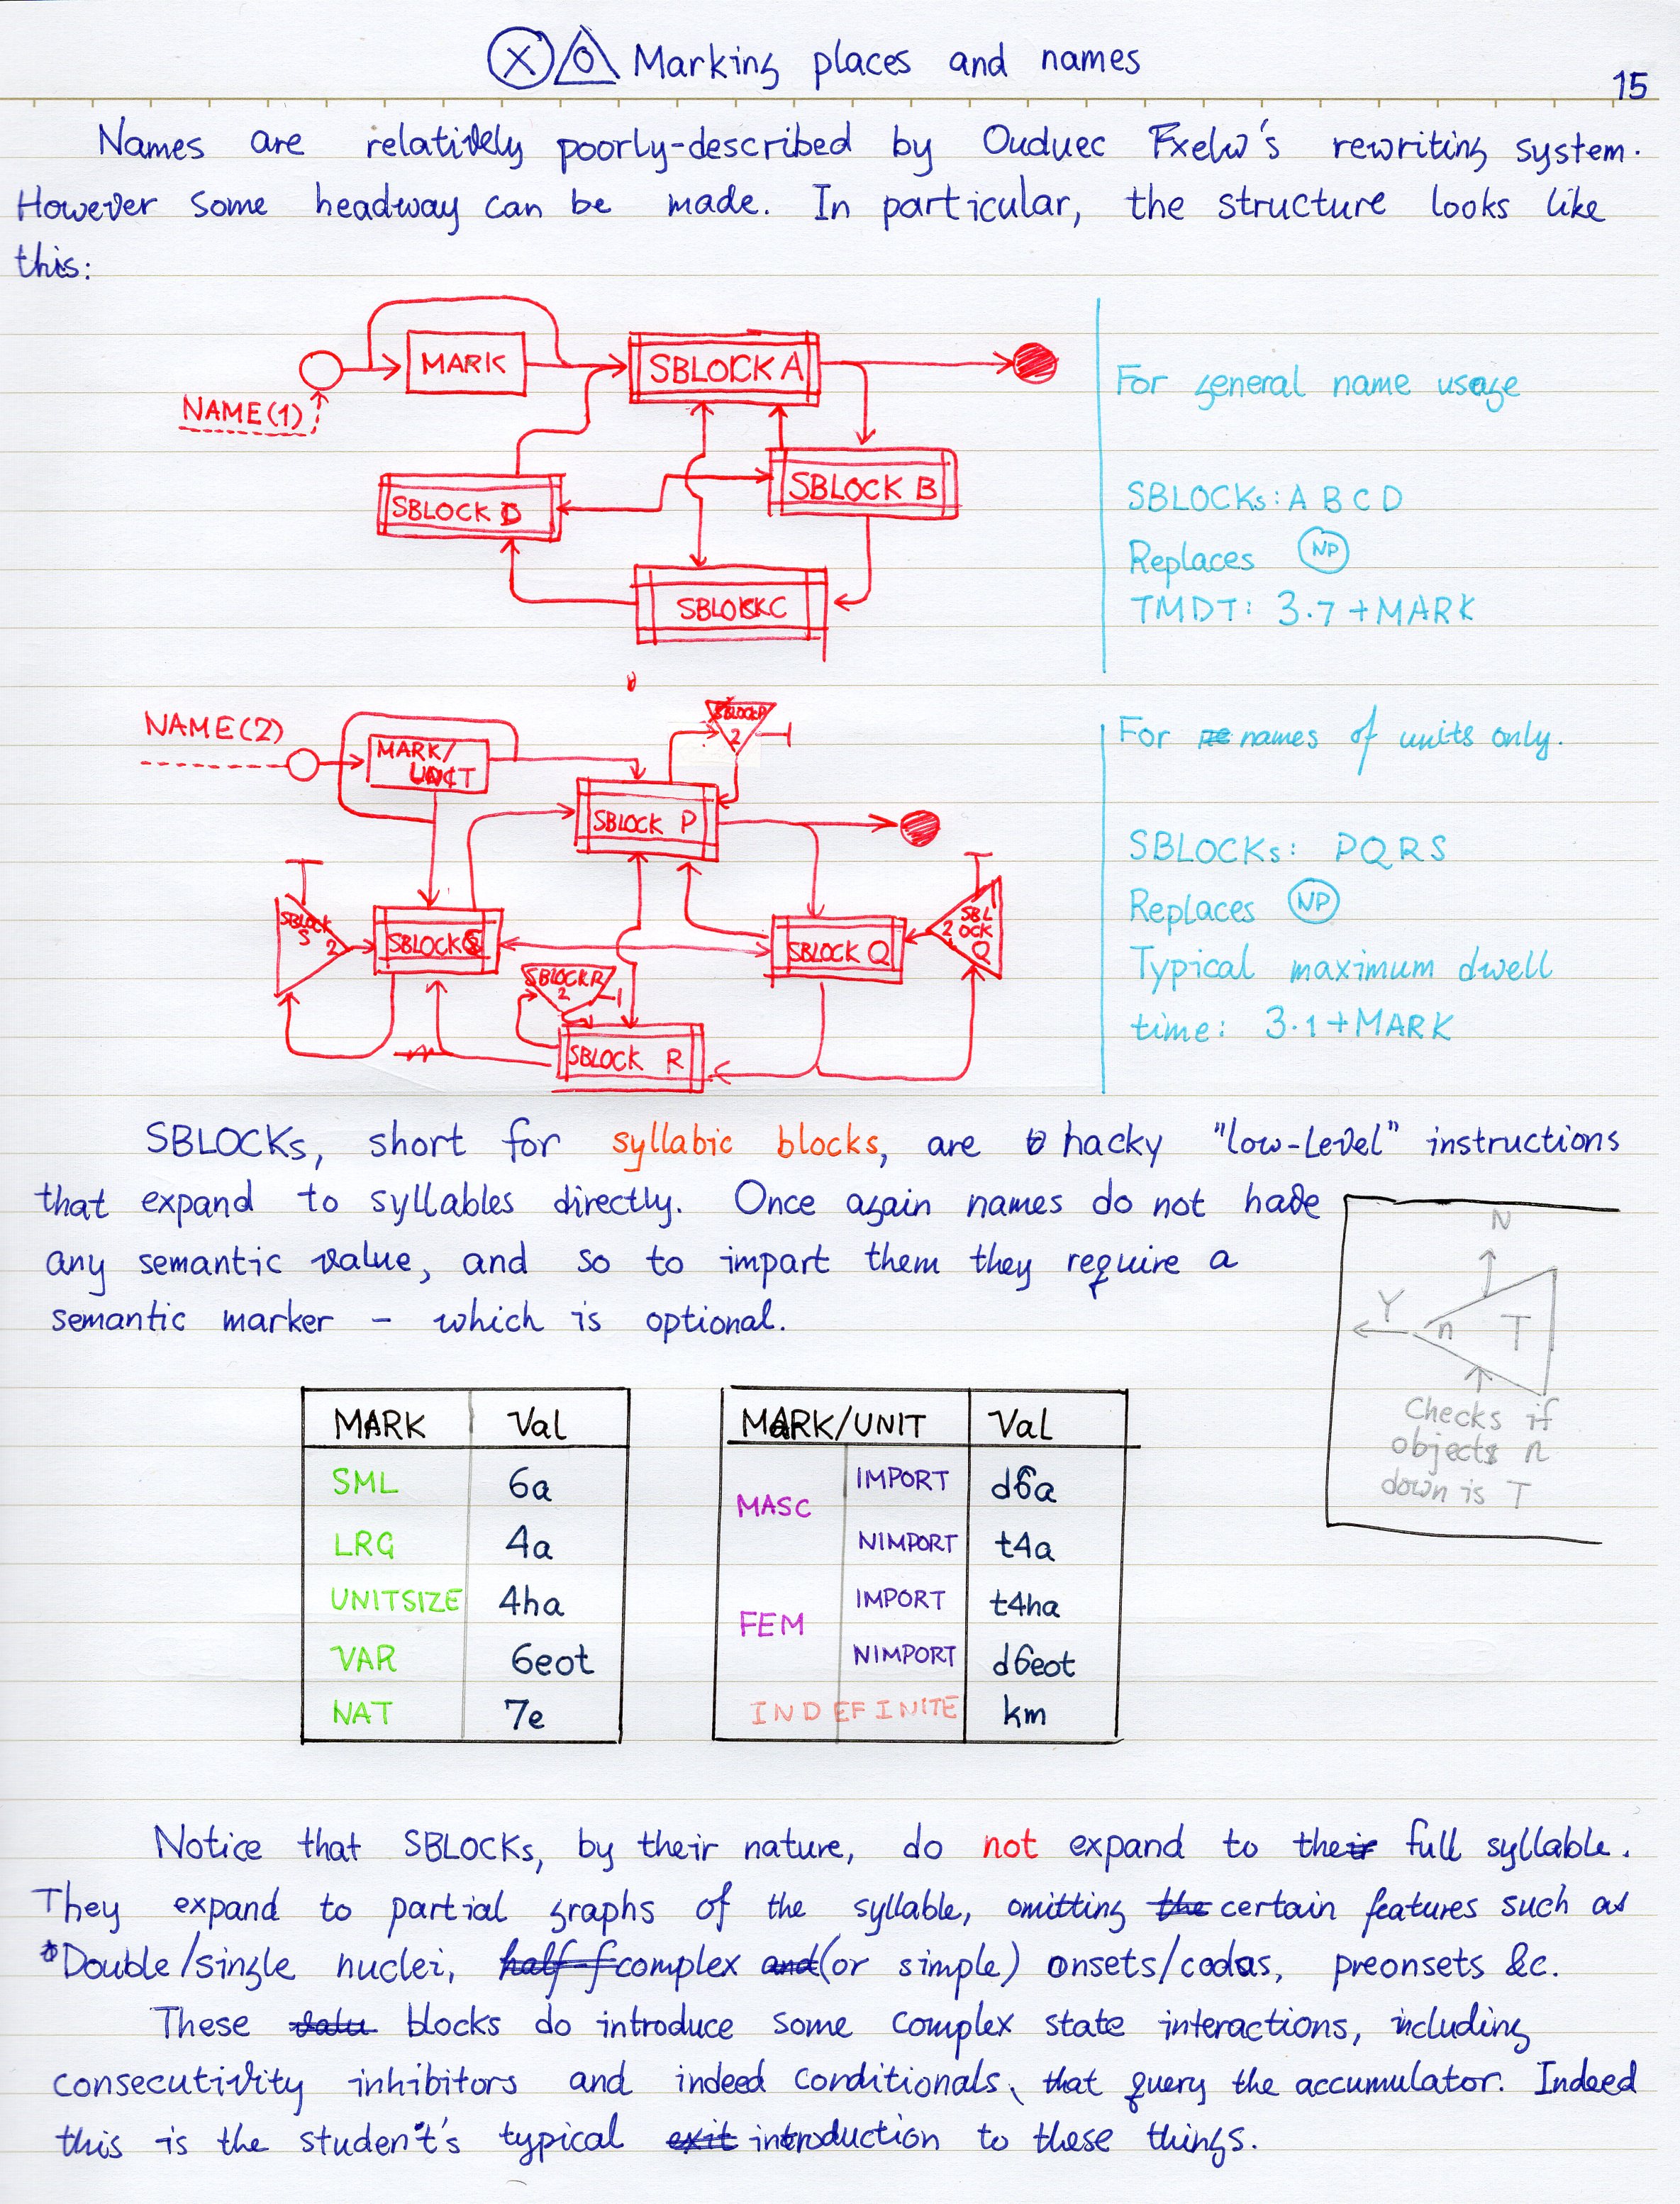 Marking places and names
15
Names are relatively poorly-described by Ouduec Fxelw's rewriting system.
However some headway can be made. In particular, the structure looks like
this:
MARK
SBLOCK A
NAME(1)
SBLOCK B
SBLOCK D
SBLOCK C
For general name usage
SBLOCKs: A B C D
Replaces NP
TMDT: 3.7 + MARK
NAME(2)
MARK/
UNIT
SBLOCK P
2
SBLOCK P
SBLOCK
S 2
SBLOCK S
SBLOCK Q
2 SBL
OCK
Q
SBLOCK R
2
SBLOCK R
For names of units only.
SBLOCKs: PQRS
Replaces NP
Typical maximum dwell
time: 3.1 + MARK
SBLOCKs, short for syllabic blocks, are hacky "low-level" instructions
that expand to syllables directly. Once again names do not have
any semantic value, and so to impart them they require a
semantic marker – which is optional.
N
Y n T
Checks if
objects n
down is T
MARK Val
SML 6a
LRG 4a
UNITSIZE 4ha
VAR 6eot
NAT 7e
MARK/UNIT Val
MASC IMPORT d6a
NIMPORT t4a
FEM IMPORT t4ha
NIMPORT d6eot
INDEFINITE km
Notice that SBLOCKs, by their nature, do not expand to the full syllable.
They expand to partial graphs of the syllable, omitting the certain features such as
Double/single nuclei, half f complex and (or simple) onsets/codas, preonsets &c.
These valu blocks do introduce some complex state interactions, including
consecutivity inhibitors and indeed conditionals, that query the accumulator. Indeed
this is the student's typical exit introduction to these things.